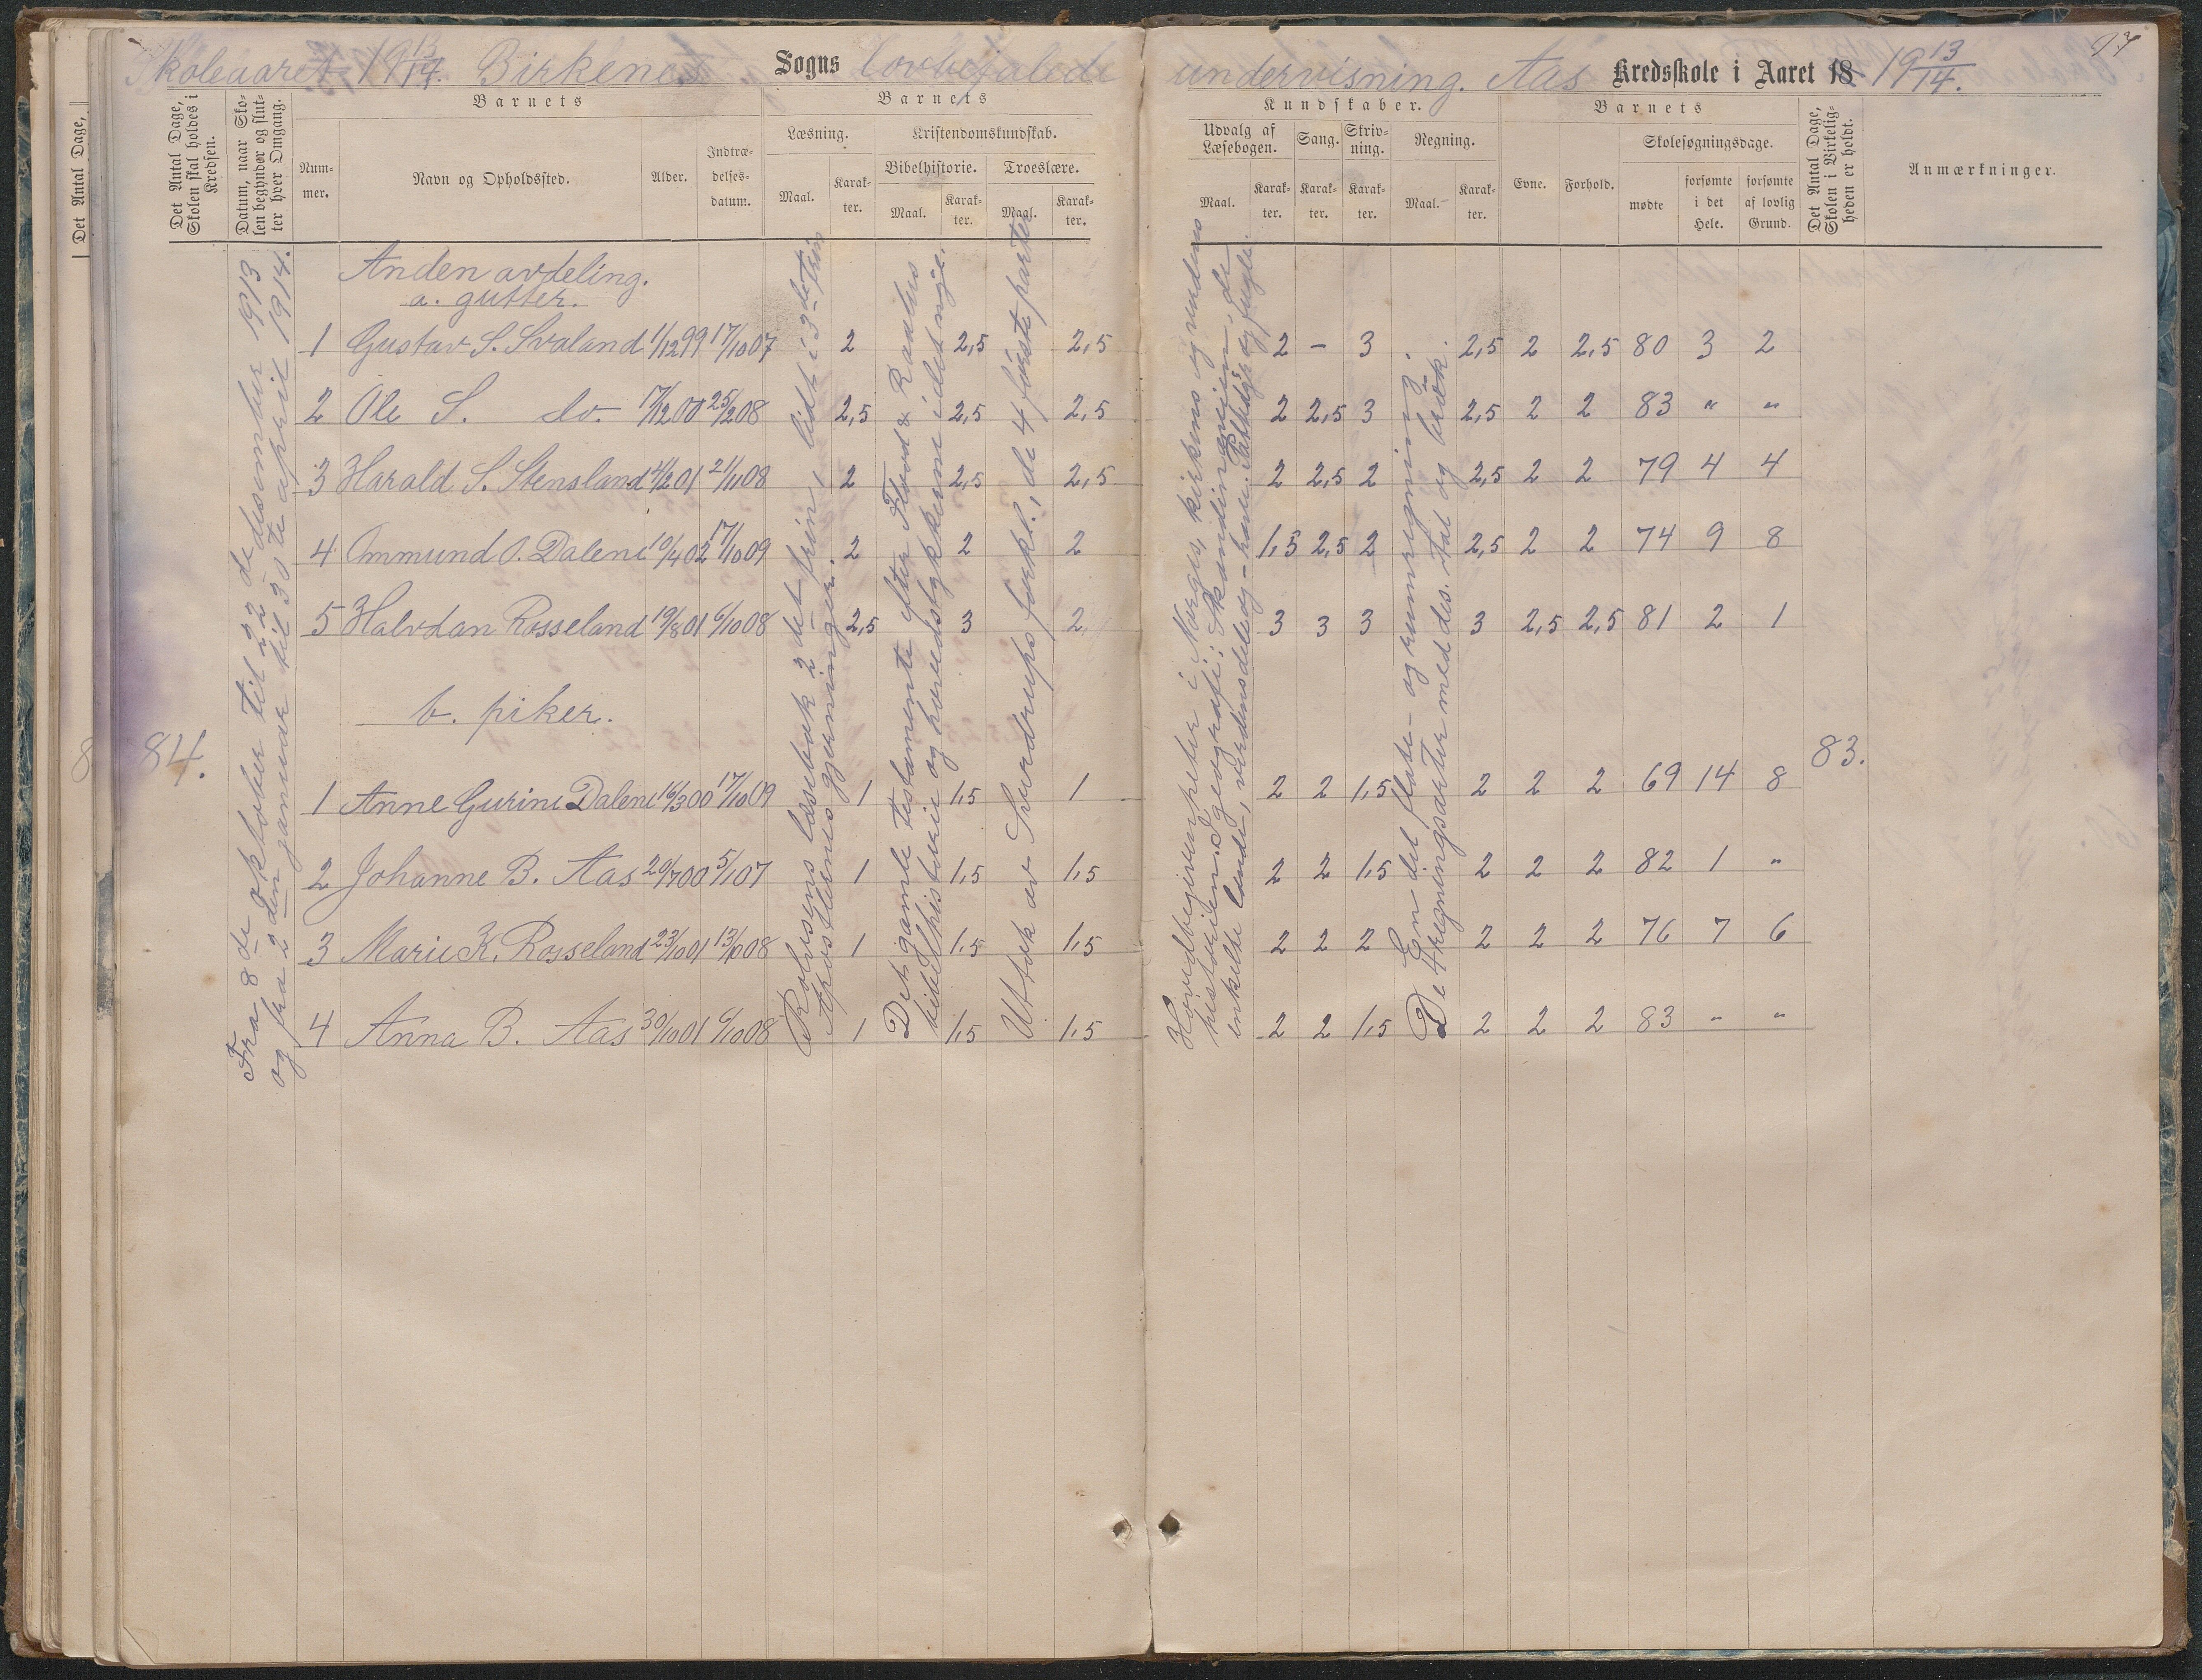 Skoleaaret 19 13/14. Birkenes Sogns lovbefalede undervisning. Aas Kredsskole i Aaret 18 19 13/14.
97
Det Antal Dage,
Det Antal Dage, Skolen skal holdes i Kredsen.
Datum, naar Skolen begynder og slutter hver Omgang.
Barnets
Nummer.
Navn og Opholdssted.
Alder.
Indtrædelsesdatum.
Barnets
Læsning.
Maal.
Karakter.
Kristendomskundskab.
Bibelhistorie.
Maal.
Karakter.
Troeslære.
Maal.
Karakter.
Kundskaber.
Udvalg af Læsebogen.
Maal.
Karakter.
Sang.
Karakter.
Skrivning.
Karakter.
Regning.
Maal.
Karakter.
Barnets
Evne.
Forhold.
Skolesøgningsdage.
mødte
forsømte i det Hele.
forsømte af lovlig Grund.
Det Antal Dage, Skolen i Virkeligheden er holdt.
Anmærkninger.
84.
Fra 8de oktober til 22de desember 1913
og fra 2den januar til 30te april 1914.
Anden avdeling.
a. gutter.
1 Gustav S. Svaland 1/12 99 17/10 07 2 2,5 2,5 2 - 3 2,5 2 2,5 80 3 2
2 Ole S. do. 17/12 00 25/2 08 2,5 2,5 2,5 2 2,5 3 2,5 2 2 83 " "
3 Harald S. Stensland 4/2 01 21/1 08 2 2,5 2,5 2 2,5 2 2,5 2 2 79 4 4
4 Ommund O. Dalene 10/4 02 17/10 09 2 2 2 1,5 2,5 2 2,5 2 2 74 9 8
5 Halvdan Rosseland 19/8 01 6/10 08 2,5 3 2 3 3 3 3 2,5 2,5 81 2 1
b. piker.
1 Anne Gurine Dalene 16/3 00 17/10 09 1 1,5 1 2 2 1,5 2 2 2 69 14 8
2 Johanne B. Aas 20/7 00 5/1 07 1 1,5 1,5 2 2 1,5 2 2 2 82 1 "
3 Marie K. Rosseland 23/10 01 13/1 08 1 1,5 1,5 2 2 2 2 2 2 76 7 6
4 Anna B. Aas 30/10 01 6/10 08 1 1,5 1,5 2 2 1,5 2 2 2 83 " "
Rolvsens læsebok 2det trin, lidt i 3dete trin
Apostlenes gjerninger.
Det gamle testamente efter Flood & Raaens
bibelhistorie og hovedstykkerne i det nye.
Uttok av Sverdrups forkl., de 4 første parter
Hovedbegivenheter i Norges, kirkens og verdens
historien. I geografi: Skandinavien, de
enkelte lande, verdensdele og -have. Pattedyr og fugle.
En del flate- og rumregning.
De 4 regningsarter med des. tal og brøk.
83.